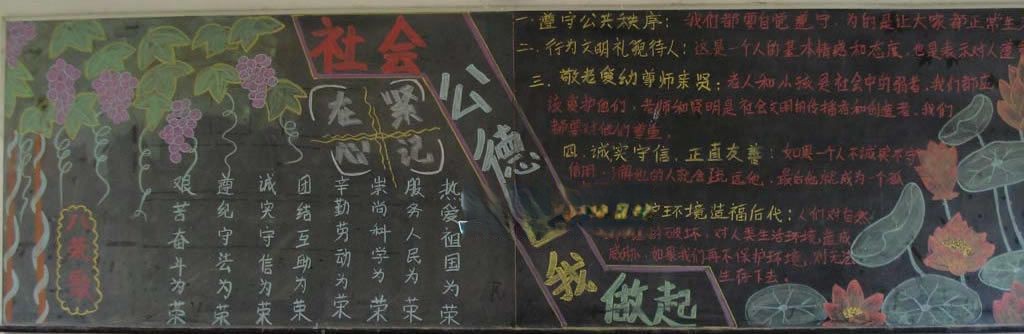 社会
公德
我
做起
紧记
在心
热爱祖国为荣
服务人民为荣
崇尚科学为荣
辛勤劳动为荣
团结互助为荣
诚实守信为荣
遵纪守法为荣
艰苦奋斗为荣
八荣歌
一.遵守公共秩序:我们都要自觉遵守.为的是让大家都正常生
二.行为文明礼貌待人:这是一个人的基本情感和态度.也是表示对人
三.敬老爱幼尊师亲贤:老人和小孩是社会中的弱者,我们都应
该爱护他们.老师和贤明是社会文明的传播者和创造者.我们
都要对他们尊重.
四.诚实守信.正直友善:如果一个人不诚实不守
信用.了解他的人就会远远他.最后他就成为一个孤
护环境造福后代:人们对自然
的破坏.对人类生活环境造成
威胁.如果我们再不保护环境,对无法
生存下去.